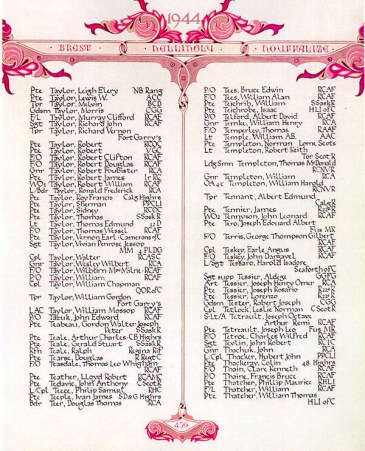 1944
BREST HELLIMOLI HOUFFALIZE
Pte Taylor, Leigh Ellery NB Rang
Pte Taylor, Lewis W. AOC
Tpr Taylor, Melvin BCD
Gdsm Taylor, Morris CGG
F/L Taylor, Murray Clifford RCAF
Sgt Taylor, Richard John RCAF
Tpr Taylor, Richard Vernon
Fort Garry's
Pte Taylor, Robert
Pte Taylor, Robert
F/O Taylor, Robert Clifton RCAF
F/O Taylor, Robert Douglas RCAF
Gnr Taylor, Robert Foubister RCA
Pte Taylor, Robert James Ir RC
WO2 Taylor, Robert William RCAF
L/Bdr Taylor, Ronald Frederick RCA
Pte Taylor, Roy Francis Calg Highrs
Pte Taylor, Sherman PPCLI
Pte Taylor, Sidney
Pte Taylor, Thomas S Sask R
Lt Taylor, Thomas Edmund
F/O Taylor, Thomas Wessel RCAF
Pte Taylor, Vernon Earl
Sgt Taylor, Vivian Penrose Jessop
MM 4 PLDG
Cpl Taylor, Walter RCASC
Gnr Taylor, Wesley Wilbert RCA
F/O Taylor, Wilborn McMilne RCAF
P/O Taylor, William RCAF
Cpl Taylor, William Chapman
QOR of C
Tpr Taylor, William Gordon
Fort Garry's
LAC Taylor, William Mossop RCAF
P/O Tbluk, John Edward RCAF
Pte Teabeau, Gordon Walter Joseph
Peter S Sask R
Pte Teale, Arthur Charles CB Highrs
Pte Teale, Gerald Stuart S Sask R
Rfn Teale, Ralph Regina Rif
Pte Teare, Douglas
F/O Teasdale, Thomas Leo Wing
RCAF
Pte Teather, Lloyd Robert RCAMC
Pte Tedavie, John Anthony C Scot R
L/Cpl Teece, Philip Samuel RHC
Pte Teeple, Ivan James SD & G Highrs
Bdr Teer, Douglas Thomas RCA
P/O Tees, Bruce Edwin RCAF
F/O Tees, William Alan RCAF
Pte Teichrib, William S Sask R
Pte Teichrobe, Isaac HLI of C
P/O Telford, Albert David RCAF
Gnr Temke, William Henry RCA
F/O Temperley, Thomas RAAF
Lt Temple, William AB. AAC
Pte Templeton, Norman Lorne Scots
Lt Templeton, Robert Keith
Tor Scot R
Ldg Smn Templeton, Thomas McDonald
RCNVR
Gnr Templeton, William RCA
Templeton, William Harold
RCNVR
Tpr Tennant, Albert Edmund
Calg R
Pte Tennier, James C Scot R
WO2 Tennyson, John Leonard RCAF
Pte Tero, Joseph Edouard Albert
Fus MR
F/O Terris, George Thompson Gilbert
RCAF
Cpl Taskey, Earle Angus RCAF
F/O Taskey, John Dargavel RCAF
L/Sgt Tessaro, Harold Isadore
Seaforth of C
Sgt Tessier, Aldège GGFG
Tessier, Joseph Henry Omer RCA
Pte Tessier, Joseph Rosario
Pte Tessier, Lorenzo
Gdsm Tester, Robert Joseph CGG
Cpl Tetlock, Leslie Norman C Scot R
S/Lt/A Tetrault, Joseph Octave
Arthur Remi RCAF
Pte Tetreault, Joseph Leo Fus MR
F/O Tetroe, Charles Wilfred RCAF
Sgt Tevlin, John Robert RCIC
Gnr Thachuk, John RCA
L/Cpl Thacker, Hubert John PPCLI
Pte Thackery, Colin 48 Highrs
F/O Thain, Clark Kenneth RCAF
P/O Thaine, Francis Bruce RCAF
Pte Thatcher, Phillip Maurice RHLI
F/L Thatcher, William RCAF
Pte Thatcher, William Thomas
HLI of C
459